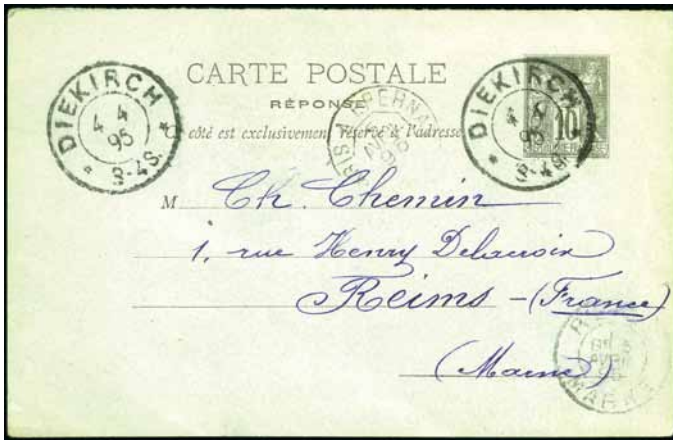 CARTE POSTALE
RÉPONSE
Ce côté est exclusivement réservé à l'adresse
DIEKIRCH
4 4
95
3-4S.
DIEKIRCH
4 4
95
3-4S.
10
M Ch. Chemin
1, rue Henry Delacroix
Reims - (France)
(Marne)
MARNE